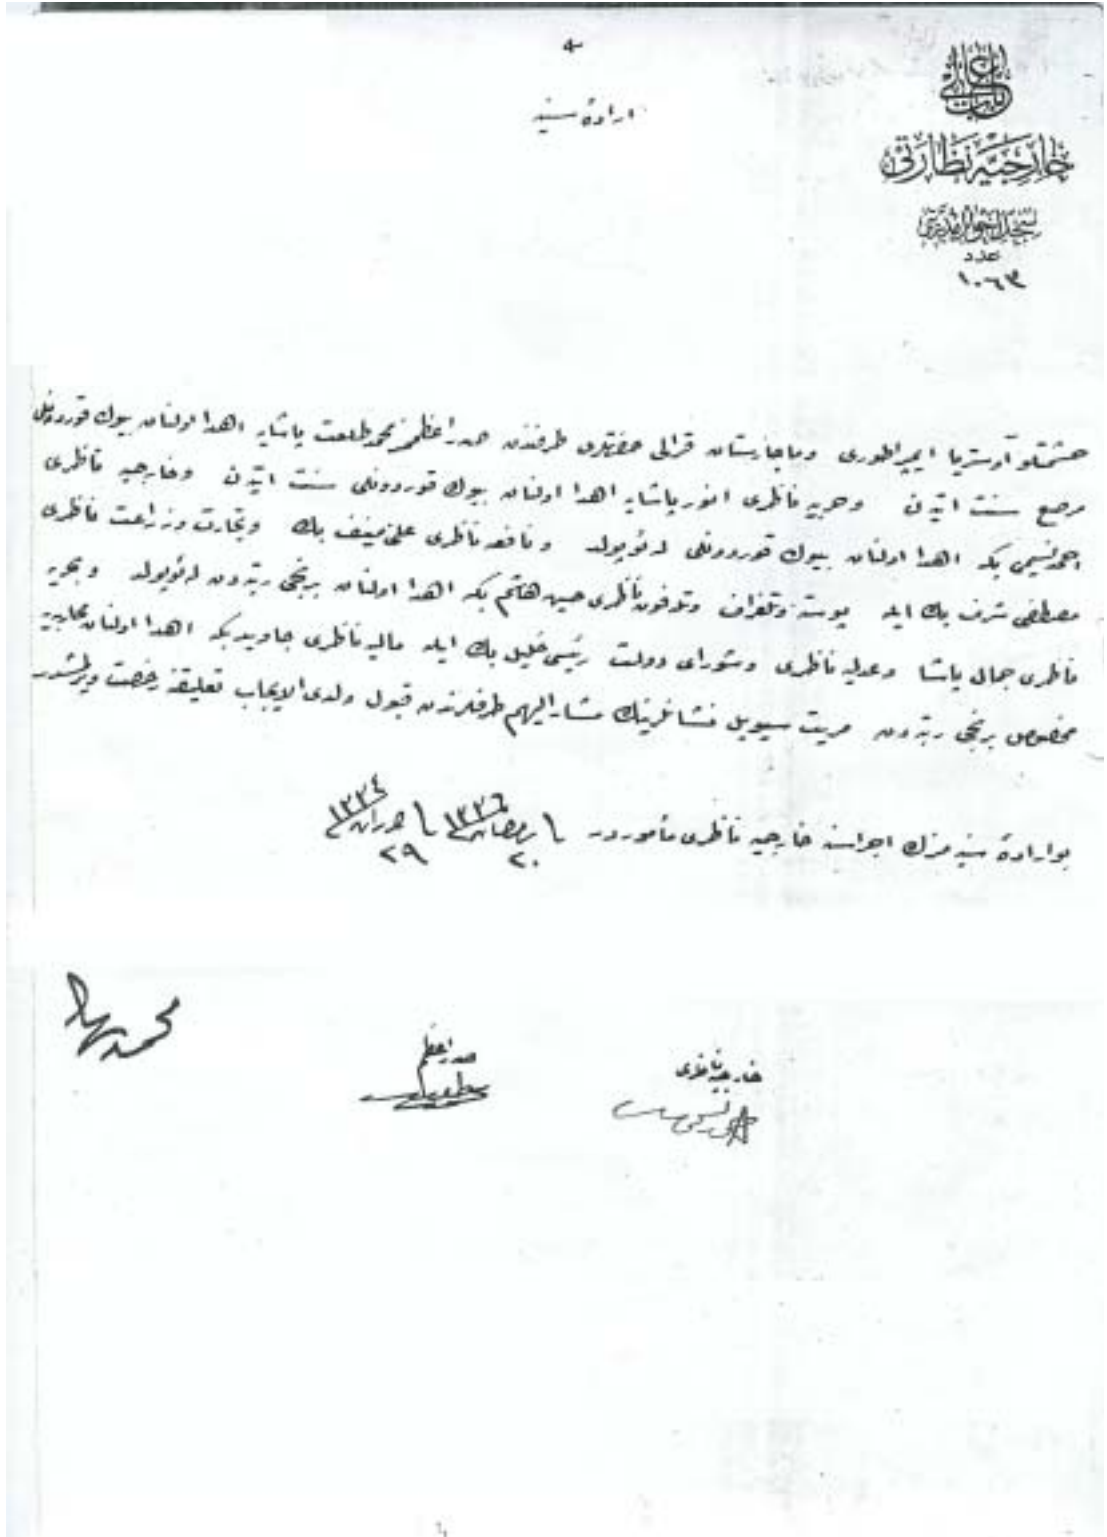 باب عالی
خارجیه نظارتی
عدد
١٠٦٣
اراده سنیه
حشمتلو آوستریا ایمپراطوری وماجارستان قرالی حضرتلری طرفندن صدر اعظم محمد طلعت پاشایه اهدا اولنان بیوك قوردونلی
مرصع سنت اتین وحربیه ناظری انور پاشایه اهدا اولنان بیوك قوردونلی سنت اتین وخارجیه ناظری
احمد نسیمی بكه اهدا اولنان بیوك قوردونلی لئوپولد ونافعه ناظری علی منیف بك وتجارت وزراعت ناظری
مصطفی شرف بك ایله پوسته وتلغراف وتلفون ناظری حسین هاشم بكه اهدا اولنان برنجی رتبه دن لئوپولد وبحریه
ناظری جمال پاشا وعدلیه ناظری وشورای دولت رئیسی خلیل بك ایله مالیه ناظری جاوید بكه اهدا اولنان محاربه یه
مخصوص برنجی رتبه دن مریت سیویل نشانلرینك مشار الیهم طرفلرندن قبول ولدی الایجاب تعلیقنه رخصت ویرلمشدر
بو اراده سنیه مزك اجراسنه خارجیه ناظری مأموردر ٢٠ رمضان ١٣٣٦ ٢٩ حزیران ١٣٣٤
خارجیه ناظری
احمد نسیمی
صدر اعظم
طلعت
محمد رشاد